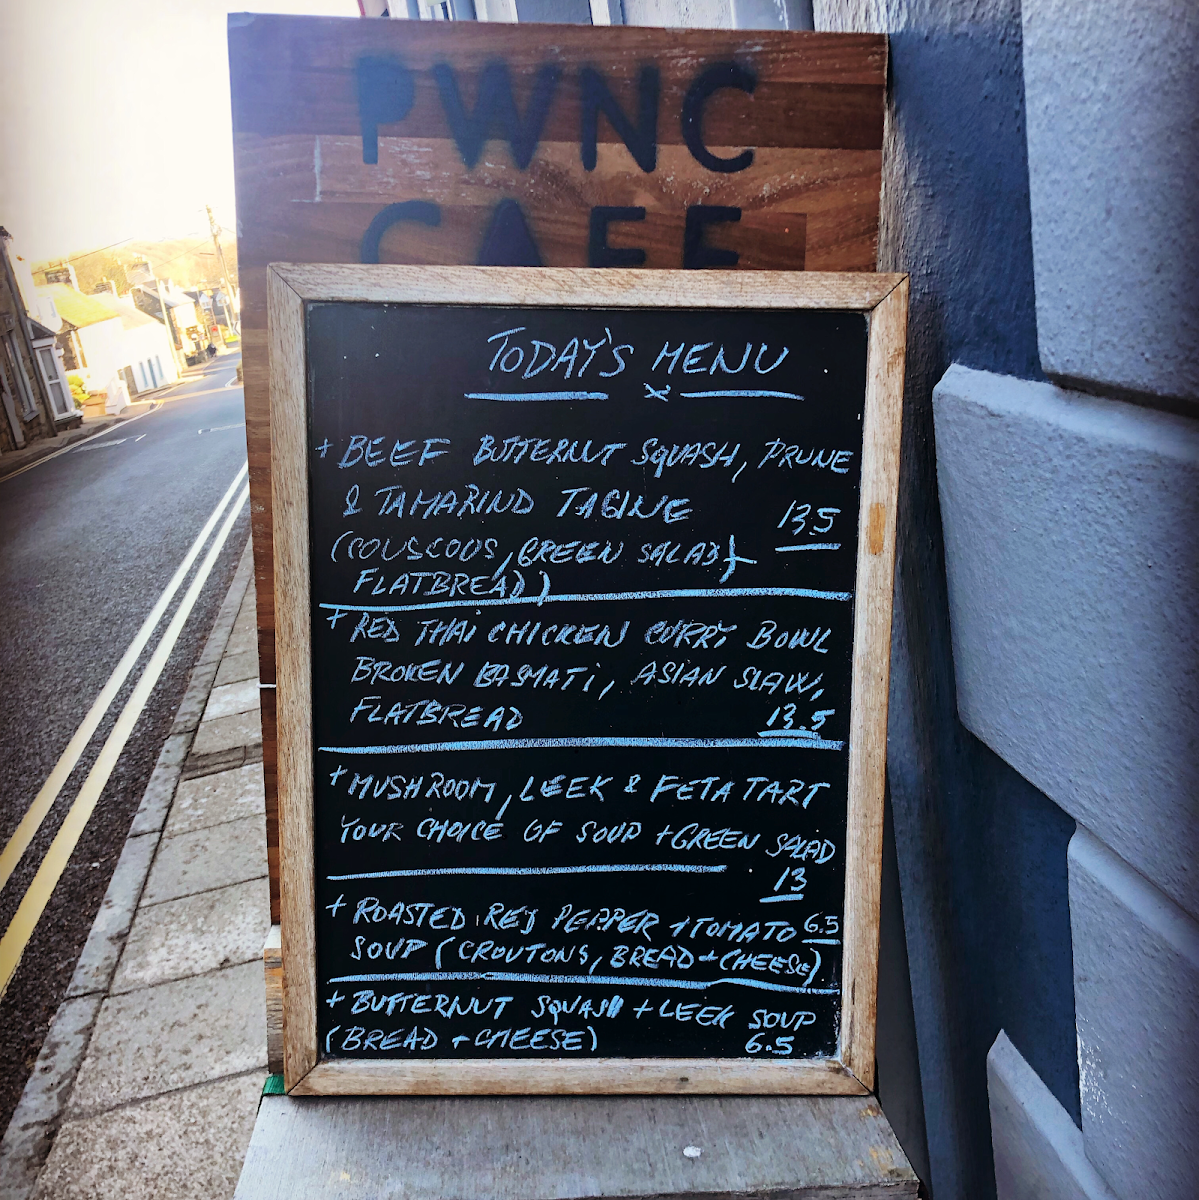 PWNC
CAFE
TODAY'S MENU
x
+ BEEF BUTTERNUT SQUASH, PRUNE
& TAMARIND TAGINE 13.5
(COUSCOUS, GREEN SALAD +
FLATBREAD)
+ RED THAI CHICKEN CURRY BOWL
BROKEN BASMATI, ASIAN SLAW,
FLATBREAD 13.5
+ MUSHROOM, LEEK & FETA TART
YOUR CHOICE OF SOUP + GREEN SALAD
13
+ ROASTED RED PEPPER + TOMATO 6.5
SOUP (CROUTONS, BREAD + CHEESE)
+ BUTTERNUT SQUASH + LEEK SOUP
(BREAD + CHEESE) 6.5